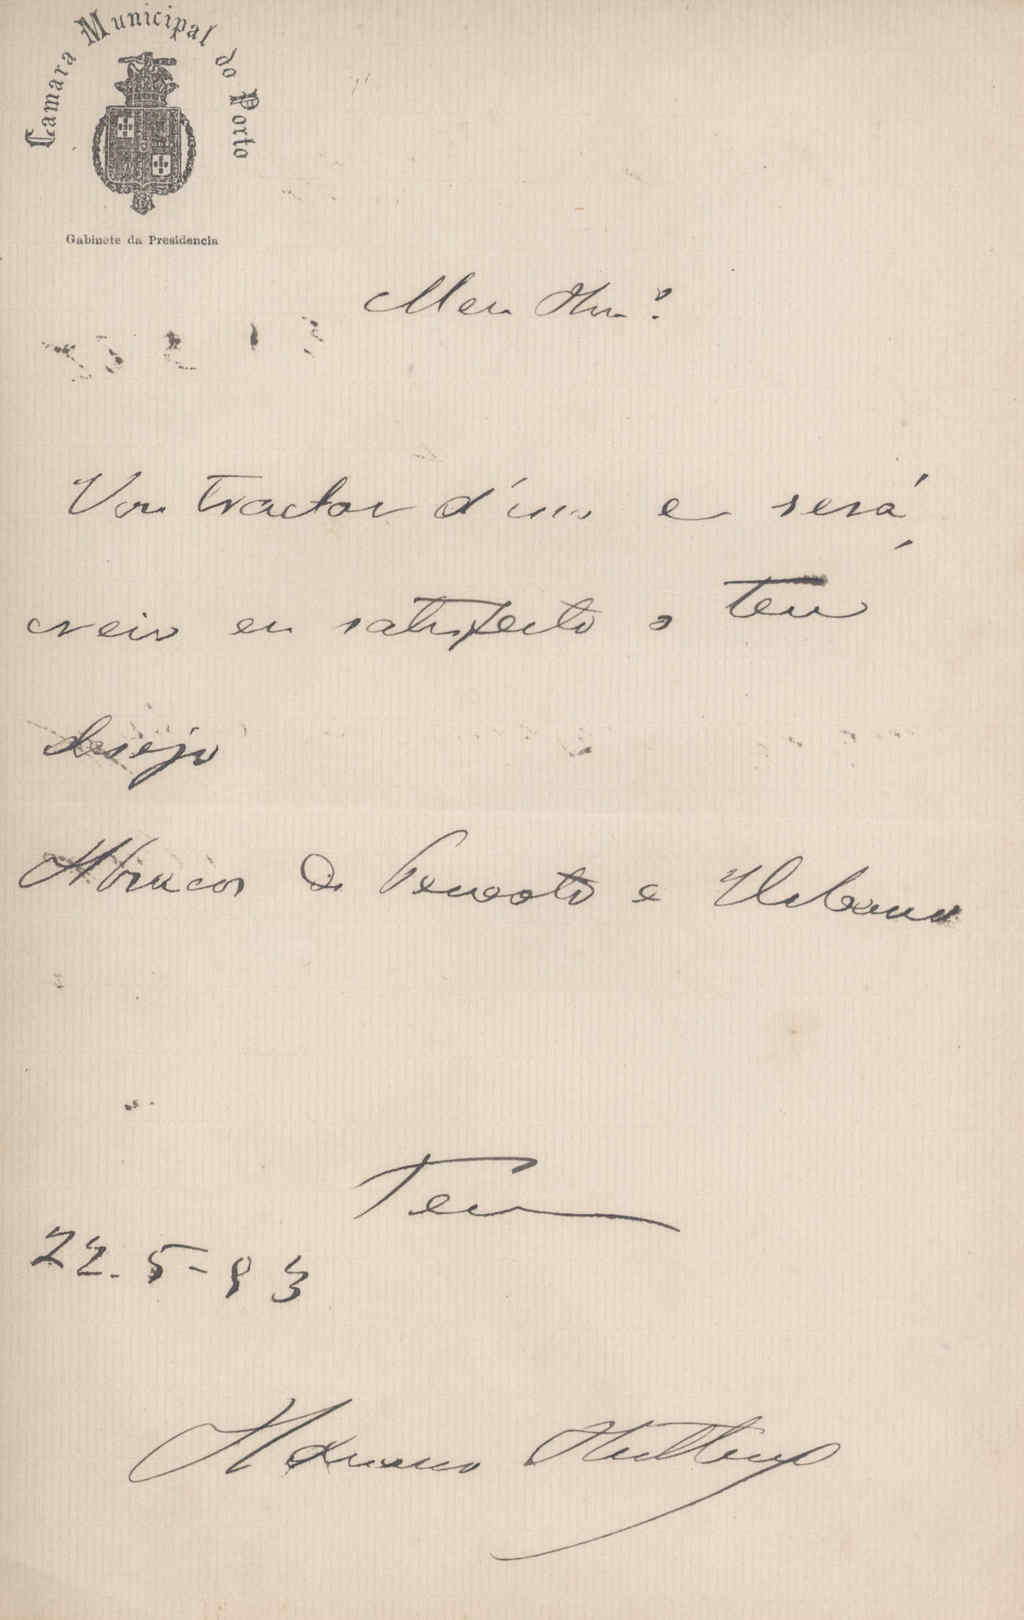 Camara Municipal do Porto
Gabinete da Presidencia
Meu
Vou tractar d'isso e será,
creio eu satisfeito o teu
desejo
Abraços do e Urbano
Teu
22.5-93
Adriano